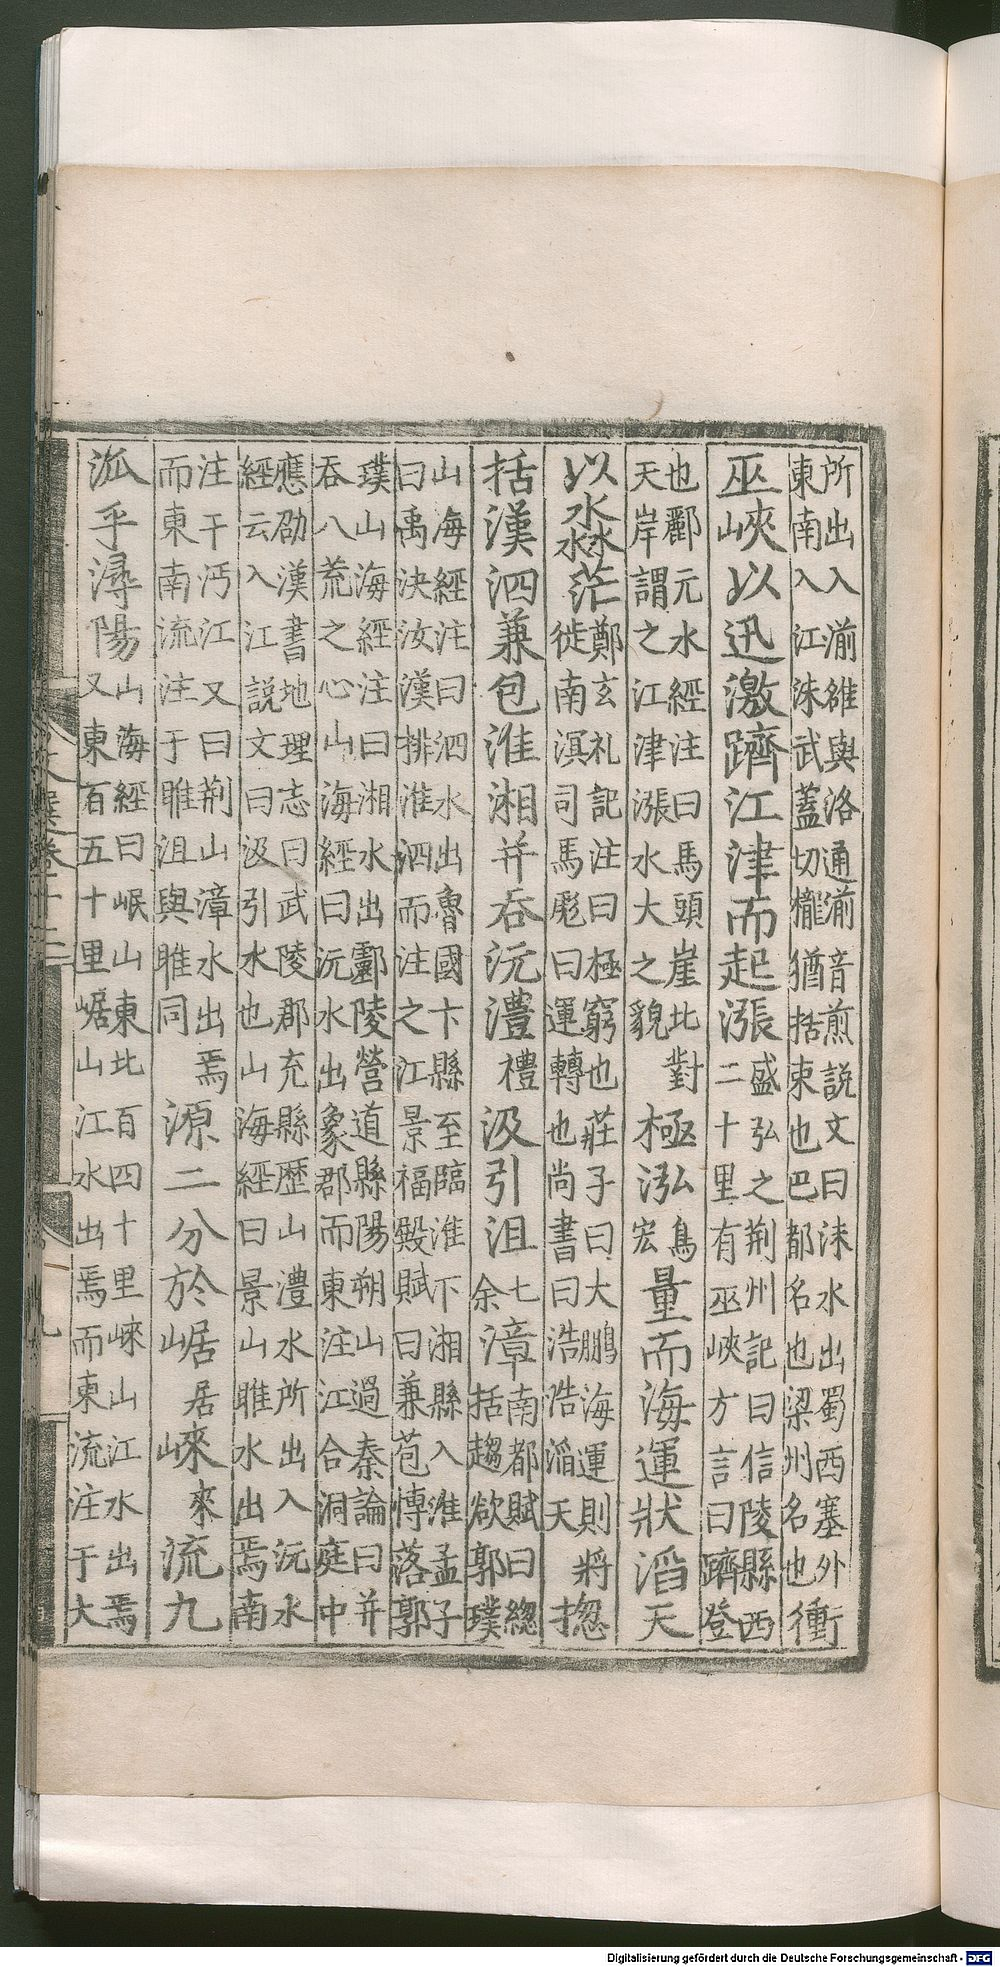 所出入湔雒與洛通湔音煎説文曰沫水出蜀西塞外
東南入江洙武蓋切櫳猶括束也巴都名也梁州名也
衝
巫峽以迅激躋江津而起漲
盛弘之荆州記曰信陵縣西
二十里有巫峽方言曰躋登
也酈元水經注曰馬頭崖北對
天岸謂之江津漲水大之貌
極泓烏宏量而海運狀滔天
以淼茫
鄭玄礼記注曰極窮也莊子曰大鵬海運則將
徙南溟司馬彪曰運轉也尚書曰浩浩滔天
揔
括漢泗兼包淮湘并吞沅澧禮汲引沮七余漳
南都賦曰緫
括趨欲郭璞
山海經注曰泗水出魯國卞縣至臨淮下湘縣入淮孟子
曰禹決汝漢排淮泗而注之江景福殿賦曰兼苞博落郭
璞山海經注曰湘水出酃陵營道縣陽朔山過秦論曰并
吞八荒之心山海經曰沅水出象郡而東注江合洞庭中
應劭漢書地理志曰武陵郡充縣歷山澧水所出入沅水
經云入江説文曰汲引水也山海經曰景山睢水出焉南
注干沔江又曰荆山漳水出焉
而東南流注于睢沮與睢同
源二分於崌居崍來流九
泒乎潯陽
山海經曰岷山東北百四十里崍山江水出焉
又東百五十里崌山江水出焉而東流注于大
文選卷十二
九
Digitalisierung gefördert durch die Deutsche Forschungsgemeinschaft - DFG